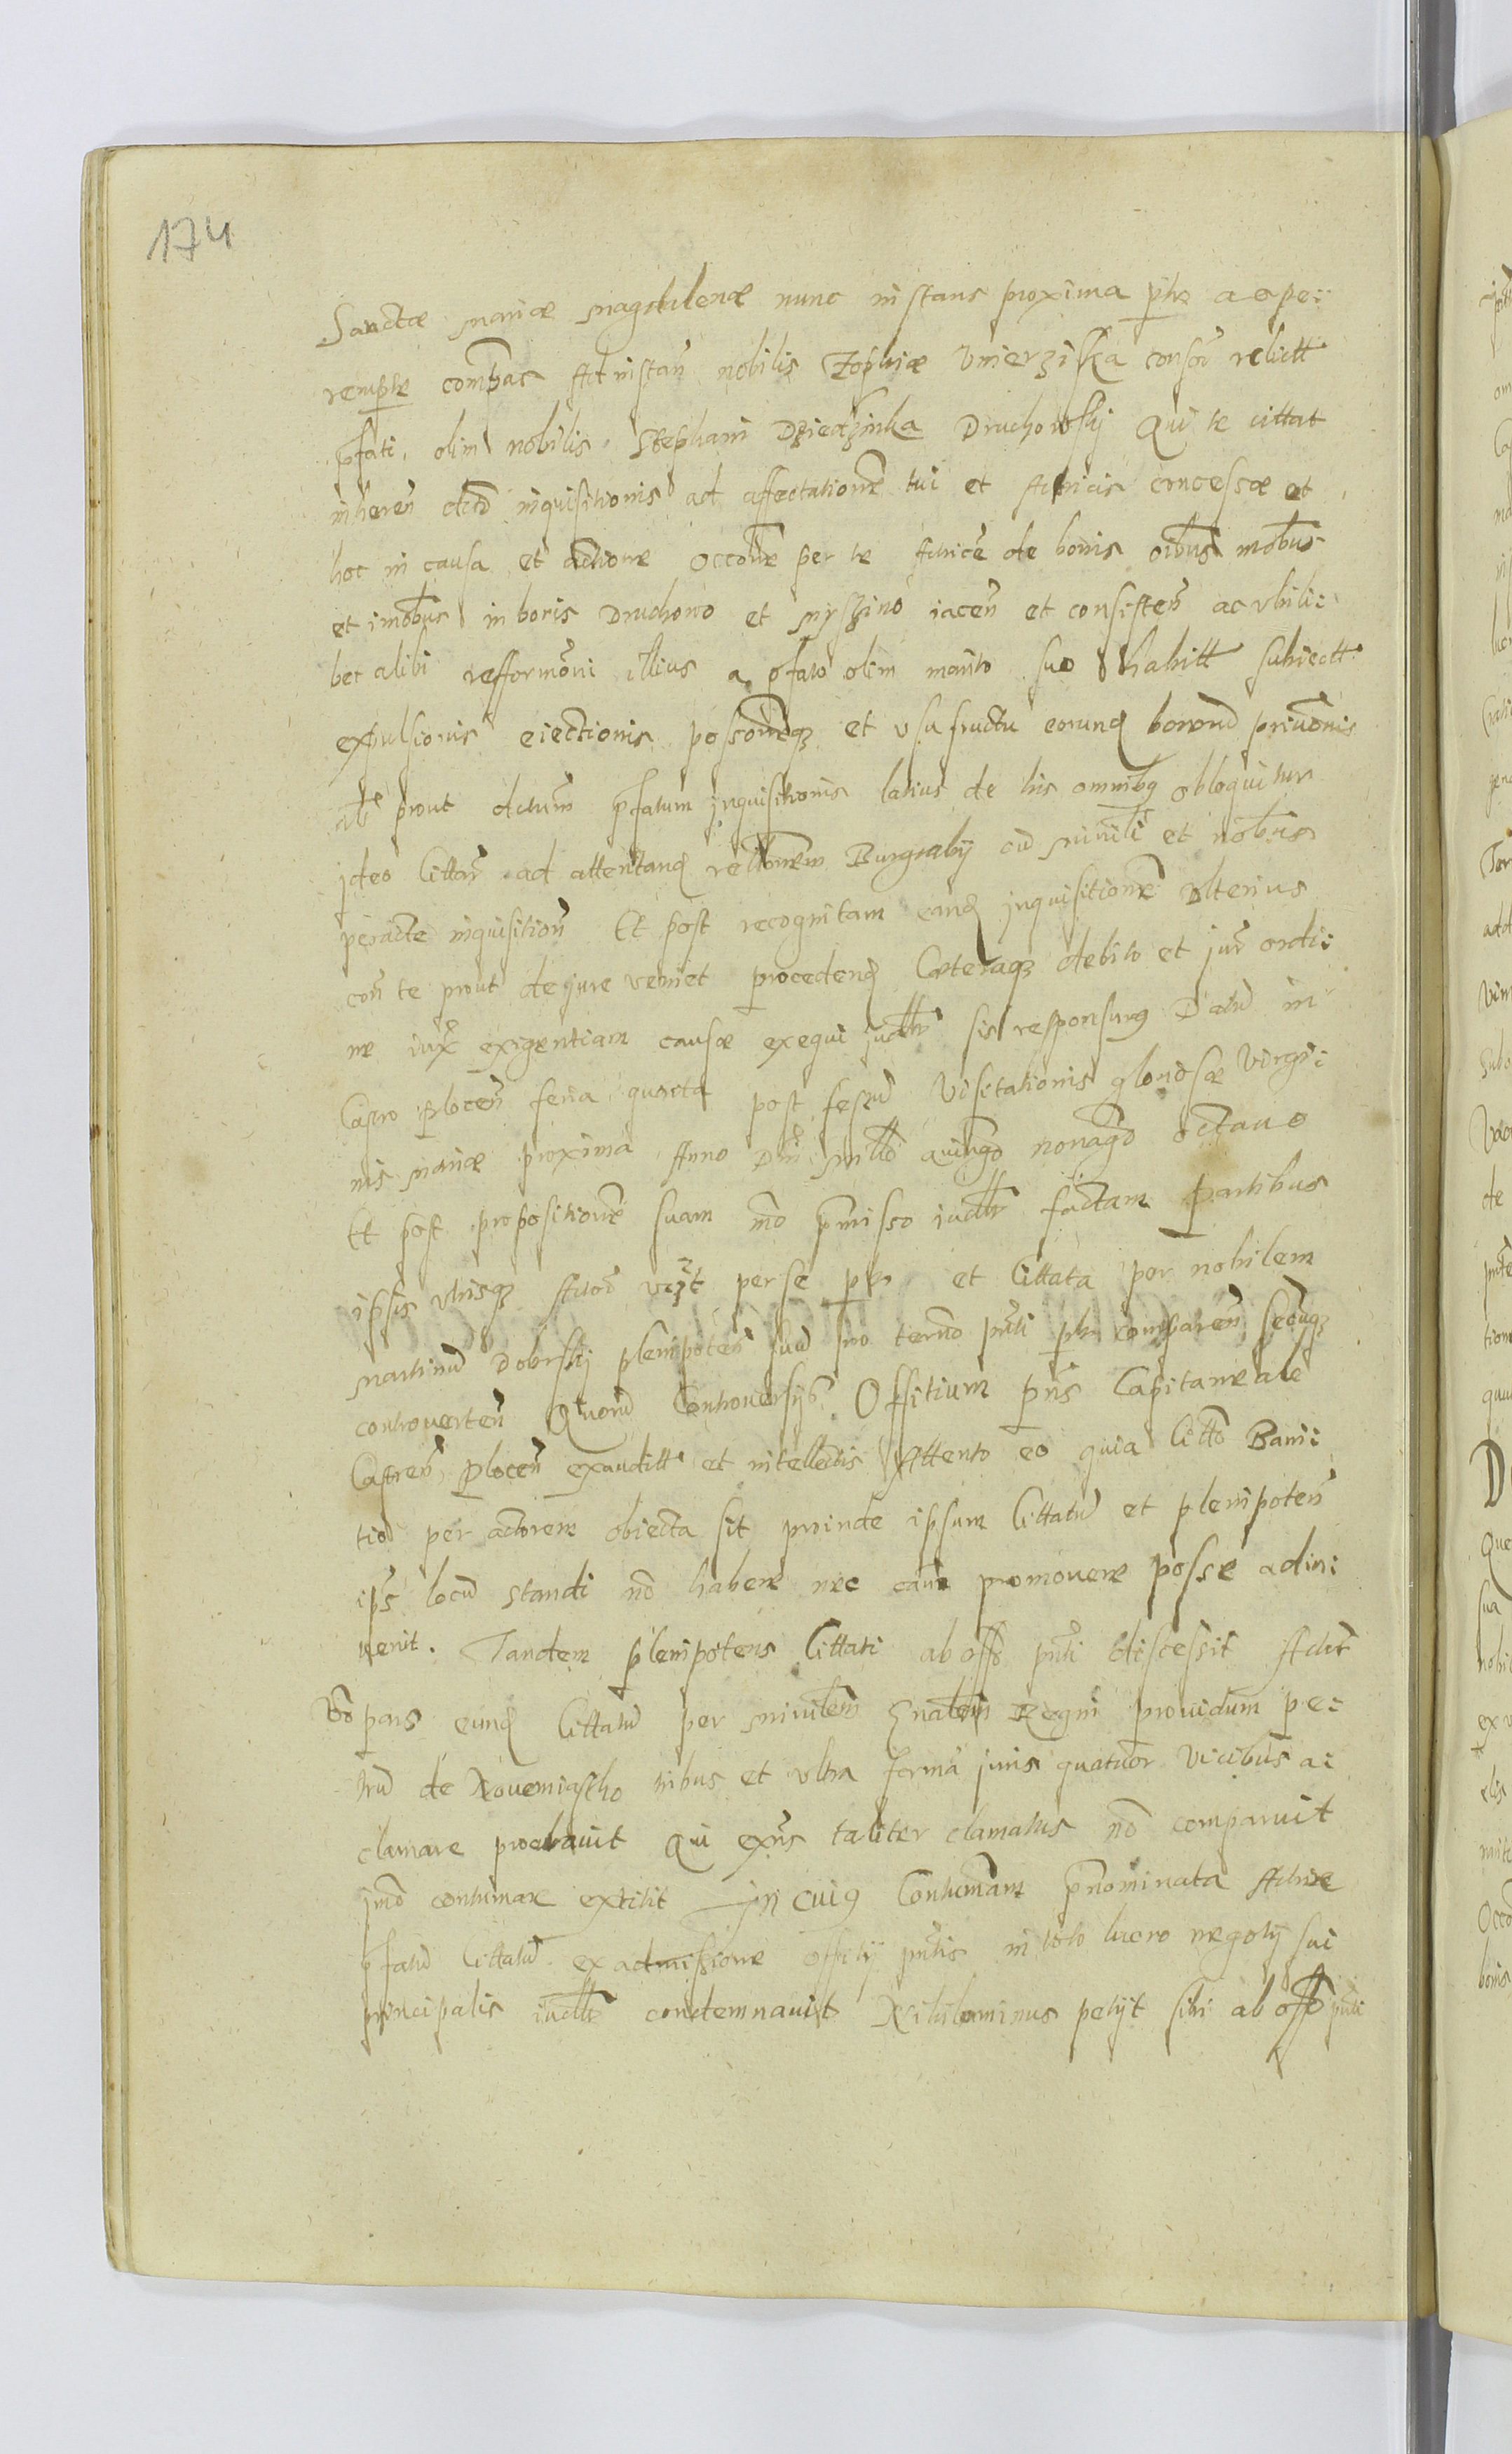 174
Sanctæ Mariæ Magdalenæ nunc instans proxima phr ac pe:
rempte compas Ad instan nobilis Zophiæ Vnierziska consor relictt
pfati olim nobilis Stephani Dziedzinka Druchowskij Qui te cittat
inheren ded inquisitionis ad affectatione tui et Actricis concessæ et
hoc in causa et actione occone per te Actrice de bonis oibus mobus
et imobus in bonis Druchowo et Myszino iacen et consisten ac vbili:
bet alibi refformoni illius a pfato olim marito suo habitt subiectt
expulsionis eiectionis possoneqz et vsufructu eorund bonorud priuonis
prout dictum pfatum inquisitionis latius de his omnibq obloquitur
ideo Cittar ad attentand relionem Burgrabij cu Minili et nobus
peracte inquisition Et post recognitam eand inquisitione vlterius
con te prout de jure veniet procedend Cæteraqz debito et jur ordi:
ne iux exigentiam causæ exequi judltr sis responsurq Datu in
Castro Plocen feria quarta post festud Visitationis gloriosæ Virgi:
nis Mariæ proxima Anno Dni Millo Quingo nonago octauo
Et post propositione suam mo pmisso iudltr factam Partibus
ipsis vtrisqz Actor vizt per se phr et Cittata per nobilem
Martinud Dobrskij plenipoten suud pro termo pnti phr comparen secuqz
controuerten Quorud Controuersijs Offitium pns Capitaneale
Castren Plocen exauditt et intellectis Attento eo quia Citto Bani:
tiod per actorem obiecta sit proinde ipsum Cittatud et plenipoten
ips locud standi no habere nec cam promouere posse adin:
uenit. Tandem plenipotens Cittati ab offo pnti discessit Actr
vo pars eund Cittatud per Minilem Gnalem Regni prouidum Pe:
trud de Nouemiastho tribus et vltra forma juris quatuor vicibus ac
clamare procurauit Qui exns taliter clamatus no comparuit
imo contumax extitit In cuiq Contumam pnominata Actrice
pfatud Cittatud ex admissione offitij pntis in toto lucro negotij sui
principalis iudltr condemnauit Nihilominus petijt sibi ab offo pnti